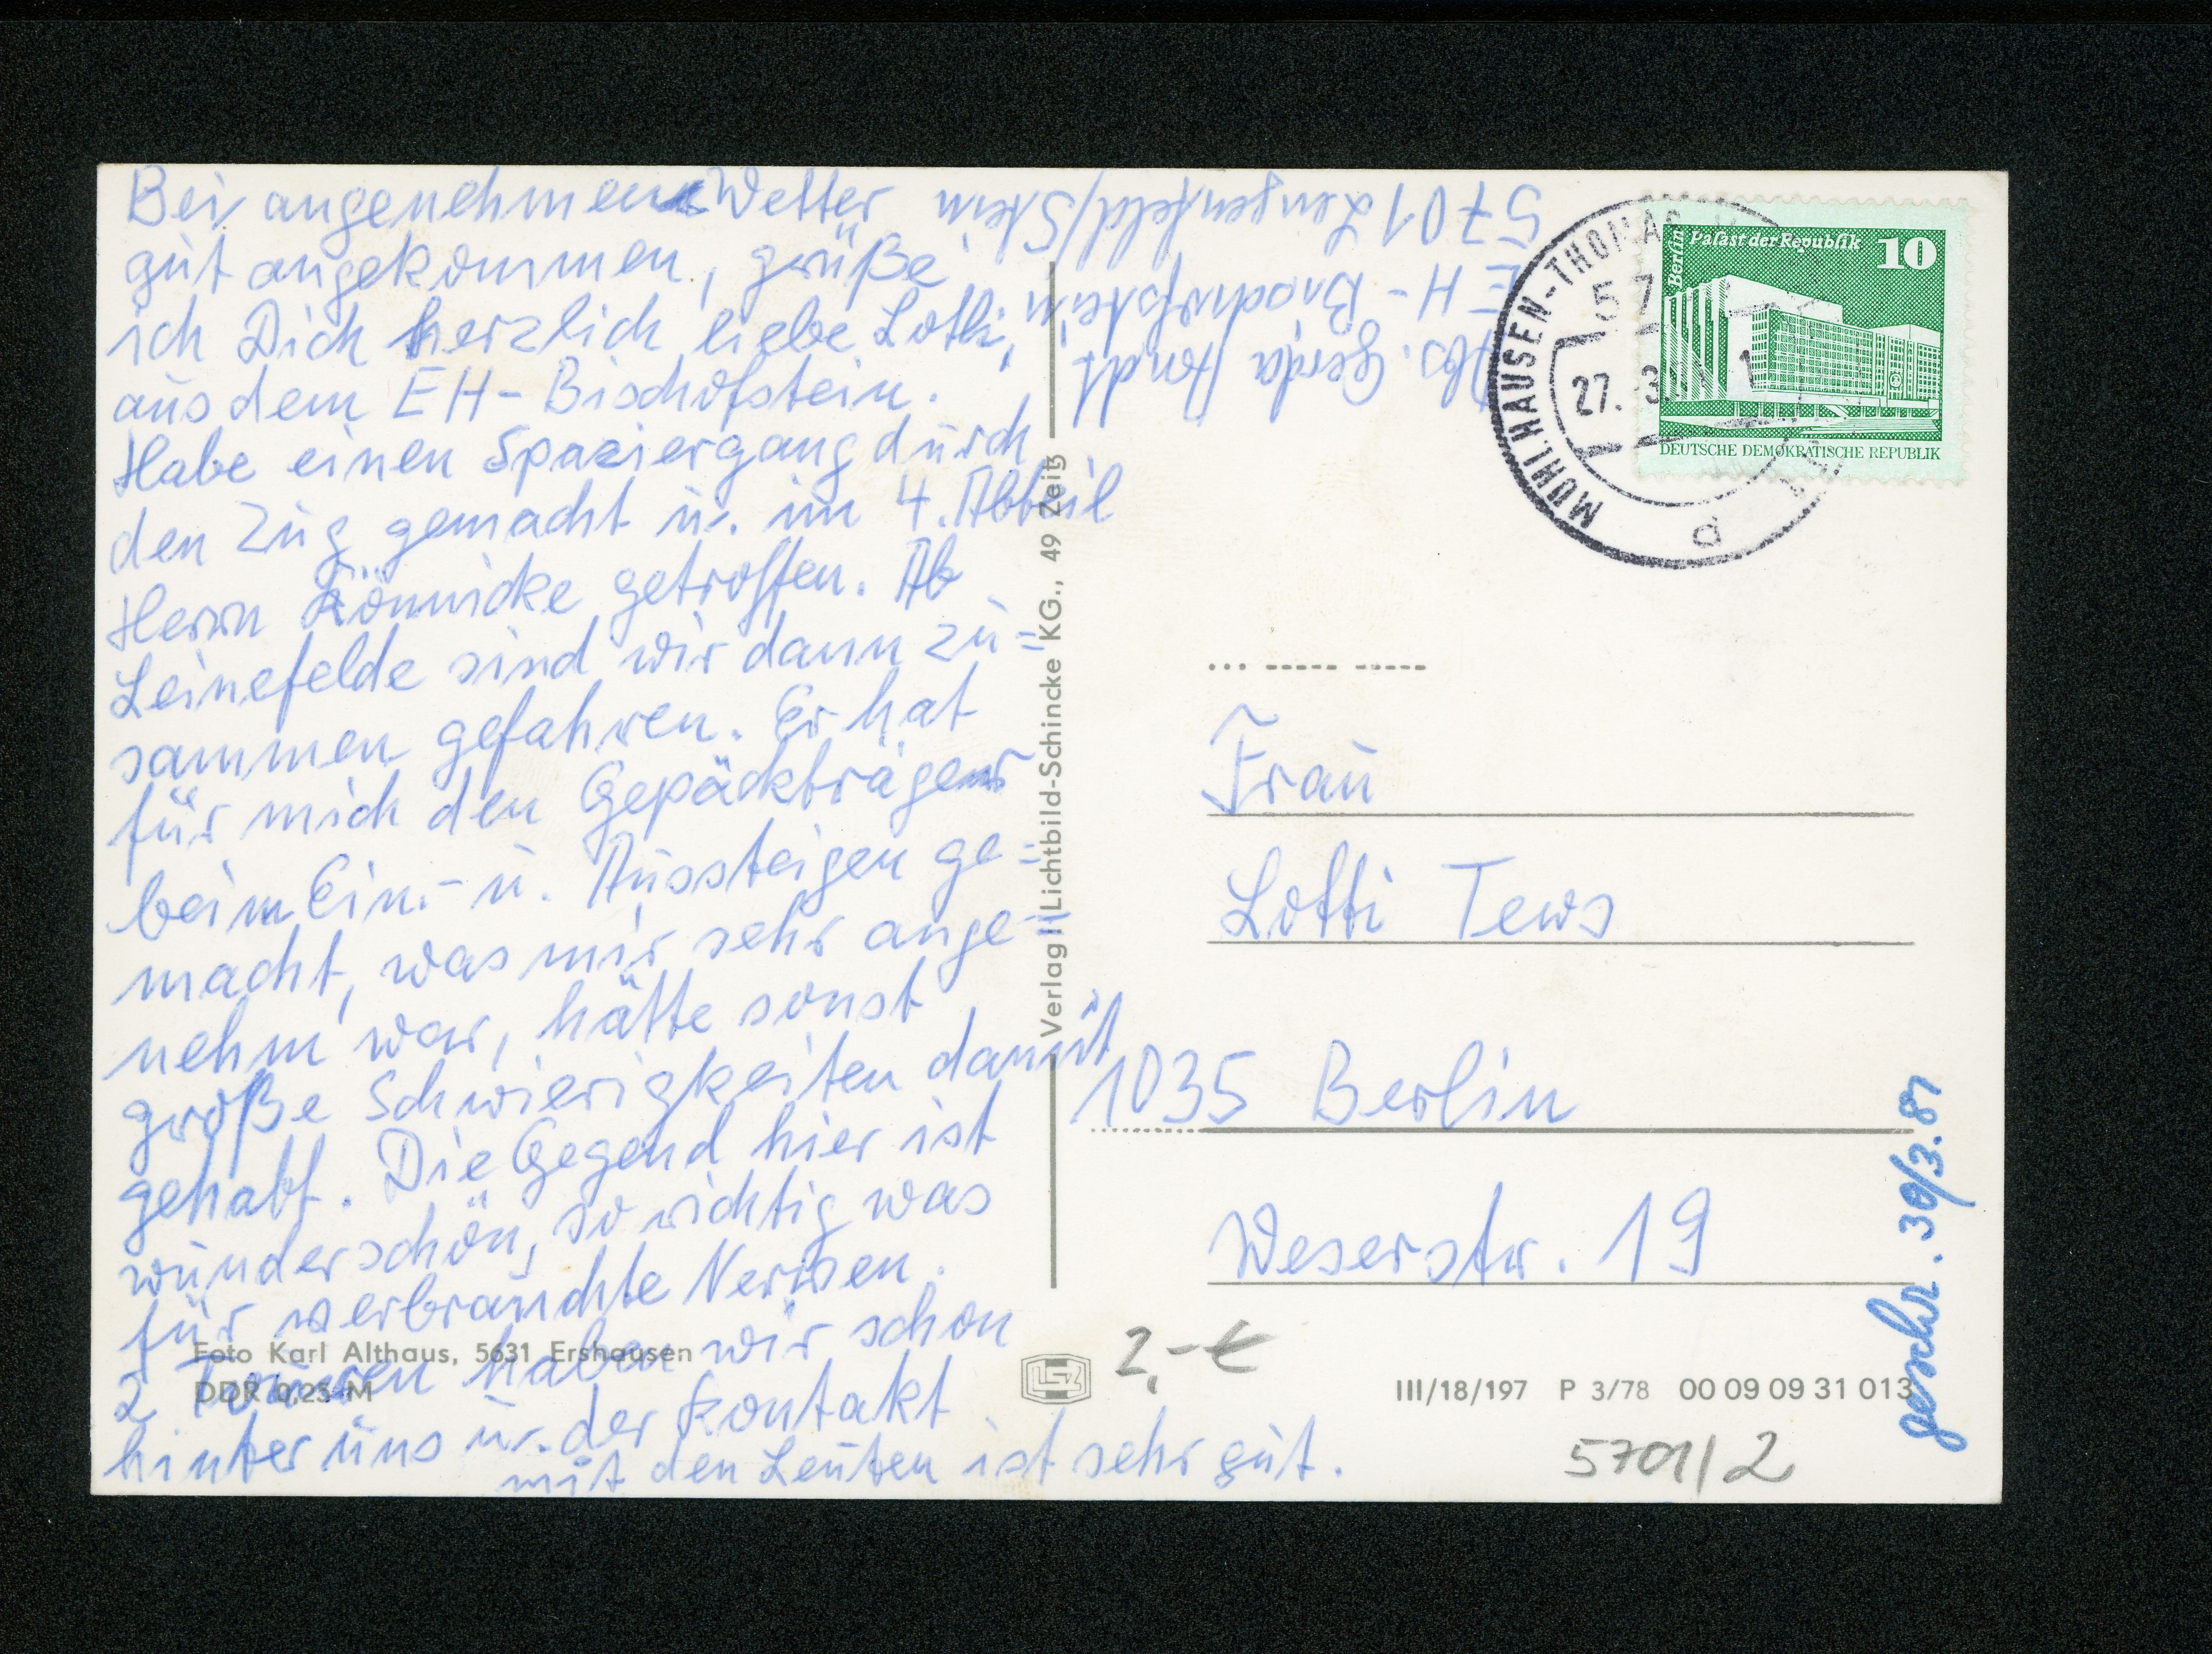 Bei angenehmen Wetter
gut angekommen, grüße
ich Dich herzlich, liebe Lotti,
aus dem EH-Bischofstein.
Habe einen Spaziergang durch
den Zug gemacht u. im 4. Abteil
Herrn Könnicke getroffen. Ab
Leinefelde sind wir dann zu=
sammen gefahren. Er hat
für mich den Gepäckträger
beim Ein- u. Aussteigen ge=
macht, was mir sehr ange=
nehm war, hätte sonst
große Schwierigkeiten damit
gehabt. Die Gegend hier ist
wunderschön, so richtig was
für verbrauchte Nerven.
2 Touren haben wir schon
hinter uns u. der Kontakt
mit den Leuten ist sehr gut.
Foto Karl Althaus, 5631 Ershausen
DDR 0,25 M
Verlag Lichtbild-Schincke KG., 49 Zeiß
Abs. Gerda Arndt
EH-Bischofstein
5701 Lengenfeld/Stein
MÜHLHAUSEN-THOMAS
57
27. 3.
Berlin
Palast der Republik
10
DEUTSCHE DEMOKRATISCHE REPUBLIK
Frau
Lotti Tews
1035 Berlin
Weserstr. 19
geschr. 30/3.81
2,-€
III/18/197 P 3/78 00 09 09 31 013
5701/2